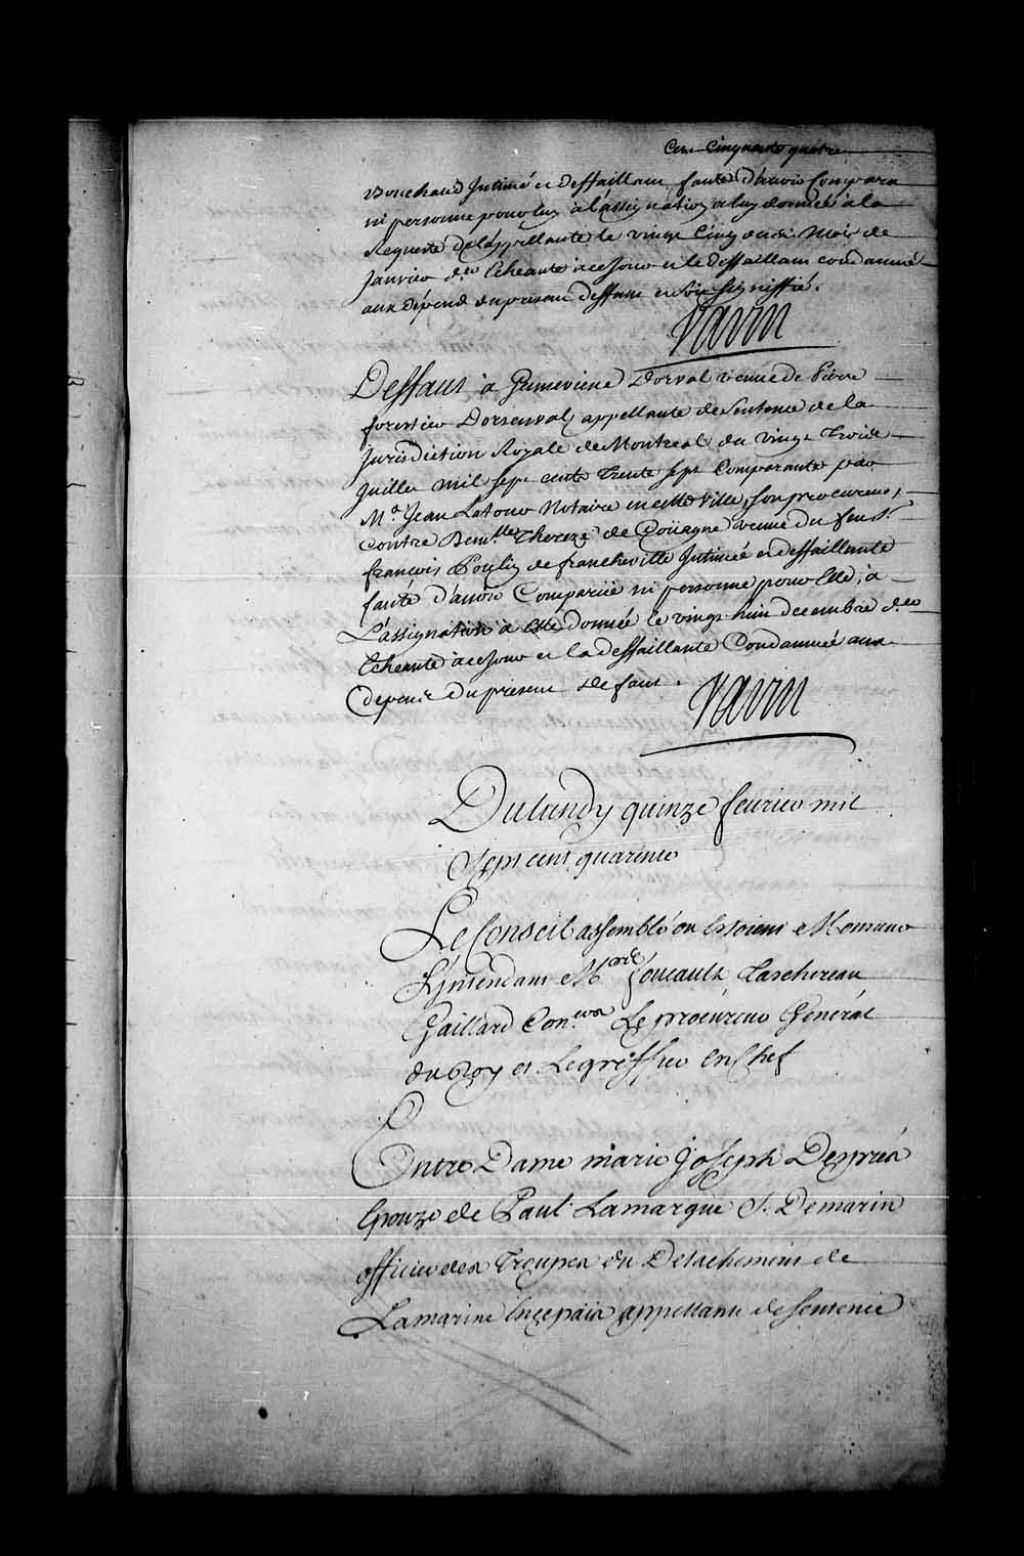 Cent Cinquante quatre
Bouchard Intimé et deffaillant, faute d'avoir Comparu
ni personne pour luy à l'assignation a luy donnée a la
Requeste de l'appellante le vingt Cinq du Mois de
Janvier d.er Echeante à ce Jour et le deffaillant condamné
aux dépens du present deffaut et soit signiffié.
Varin
Deffaut à Genevieve Dorval veuve de Pierre
forestier Dorsenval appellante de Sentence de la
Jurisdiction Royale de Montreal du vingt Trois
Juillet mil sept cents Trente sept Comparante par
M.e Jean Latour Notaire en cette ville, son procureur,
contre Dem.lle Thereze de Coüagne veuve du feu S.r
françois Poulin de francheville Intimée et deffaillante
faute d'avoir Comparüe ni personne pour Elle, à
L'assignation à Elle donnée le vingt huit decembre d.er
Echeante à ce Jour et la deffaillante Condamnée aux
depens du present defaut.
Varin
Du lundy quinze fevrier mil
Sept cent quarente
Le Conseil assemblé ou Estoient Monsieur
L'Intendant M.rs foucault Taschereau
Gaillard Con.ers Le procureur Général
du Roy et Le greffier En Chef
Entre Dame marie Joseph Desprès
Epouze de Paul Lamarque S. Demarin
officier des Troupes du Detachement de
Lamarine En ce païs appellante de Sentence